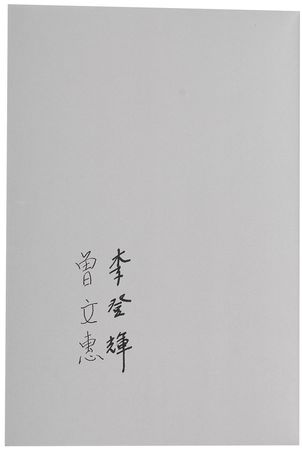 李登輝
曾文惠